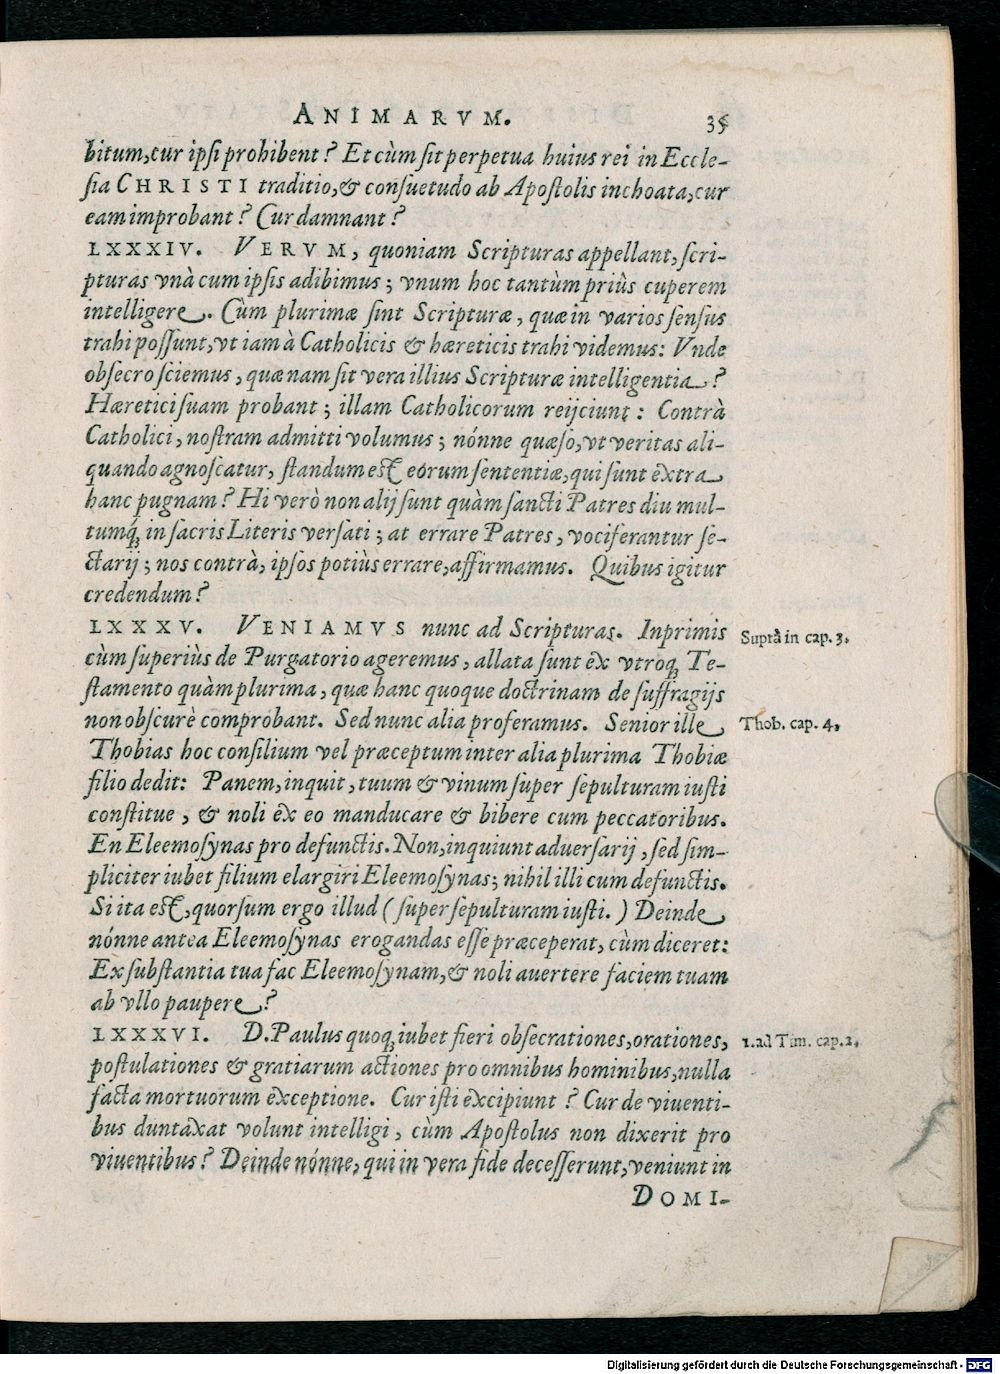 ANIMARVM. 35
bitum, cur ipsi prohibent? Et cùm sit perpetua huius rei in Eccle-
sia CHRISTI traditio, & consuetudo ab Apostolis inchoata, cur
eam improbant? Cur damnant?
LXXXIV. VERVM, quoniam Scripturas appellant, scri-
pturas vnà cum ipsis adibimus; vnum hoc tantùm priùs cuperem
intelligere. Cùm plurimæ sint Scripturæ, quæ in varios sensus
trahi possunt, vt iam à Catholicis & hæreticis trahi videmus: Vnde
obsecro sciemus, quænam sit vera illius Scripturæ intelligentia?
Hæretici suam probant; illam Catholicorum reijciunt: Contrà
Catholici, nostram admitti volumus; nónne quæso, vt veritas ali-
quando agnoscatur, standum est eorum sententiæ, qui sunt extra
hanc pugnam? Hi verò non alij sunt quàm sancti Patres diu mul-
tumq́; in sacris Literis versati; at errare Patres, vociferantur se-
ctarij; nos contrà, ipsos potiùs errare, affirmamus. Quibus igitur
credendum?
LXXXV. VENIAMVS nunc ad Scripturas. Inprimis
Suprà in cap. 3.
cùm superiùs de Purgatorio ageremus, allata sunt ex vtroq; Te-
stamento quàm plurima, quæ hanc quoque doctrinam de suffragijs
non obscurè comprobant. Sed nunc alia proferamus. Senior ille
Thob. cap. 4.
Thobias hoc consilium vel præceptum inter alia plurima Thobiæ
filio dedit: Panem, inquit, tuum & vinum super sepulturam iusti
constitue, & noli ex eo manducare & bibere cum peccatoribus.
En Eleemosynas pro defunctis. Non, inquiunt aduersarij, sed sim-
pliciter iubet filium elargiri Eleemosynas; nihil illi cum defunctis.
Si ita est, quorsum ergo illud (super sepulturam iusti.) Deinde
nónne antea Eleemosynas erogandas esse præceperat, cùm diceret:
Ex substantia tua fac Eleemosynam, & noli auertere faciem tuam
ab vllo paupere?
LXXXVI. D. Paulus quoq; iubet fieri obsecrationes, orationes,
1. ad Tim. cap. 2.
postulationes & gratiarum actiones pro omnibus hominibus, nulla
facta mortuorum exceptione. Cur isti excipiunt? Cur de viuenti-
bus duntaxat volunt intelligi, cùm Apostolus non dixerit pro
viuentibus? Deinde nónne, qui in vera fide decesserunt, veniunt in
DOMI-
Digitalisierung gefördert durch die Deutsche Forschungsgemeinschaft - DFG